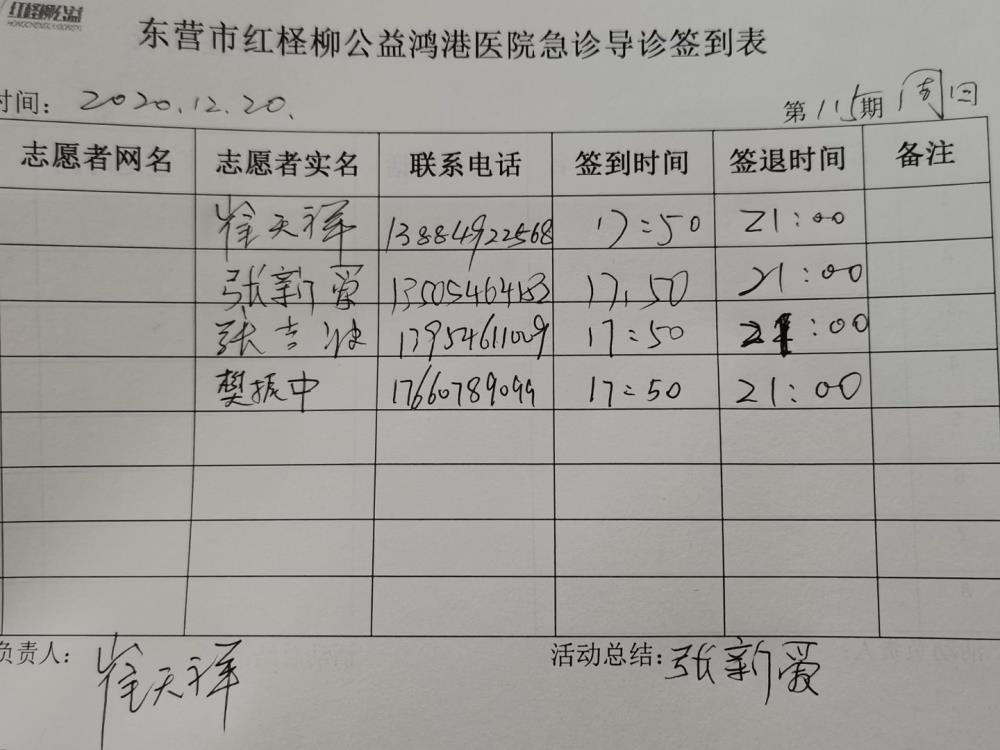 红柽柳公益
东营市红柽柳公益鸿港医院急诊导诊签到表
时间: 2020.12.20. 第115期 周日
志愿者网名 志愿者实名 联系电话 签到时间 签退时间 备注
崔天祥 13884922568 17:50 21:00
张新爱 13505464183 17:50 21:00
张吉波 13954611009 17:50 21:00
樊振中 17660789099 17:50 21:00
负责人: 崔天祥 活动总结: 张新爱